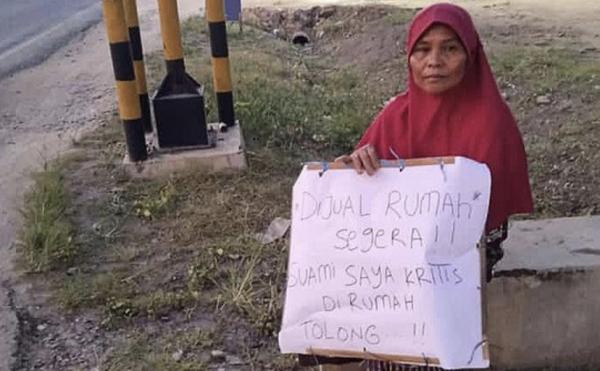 "DIJUAL RUMAH"
SEGERA!!
SUAMI SAYA KRITIS
DI RUMAH
TOLONG...!!